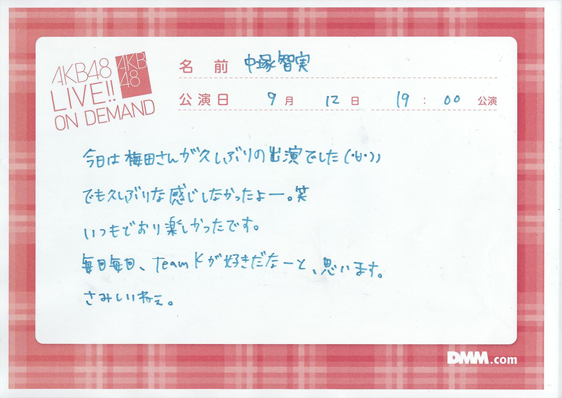 AKB48
LIVE!!
ON DEMAND
AKB
48
名前 中塚智実
公演日 9月 12日 19:00 公演
今日は梅田さんが久しぶりの出演でした(･ω･))
でも久しぶりな感じしなかったよー。笑
いつもどおり楽しかったです。
毎日毎日、Team Kが好きだなーと、思います。
さみしいねぇ。
DMM.com